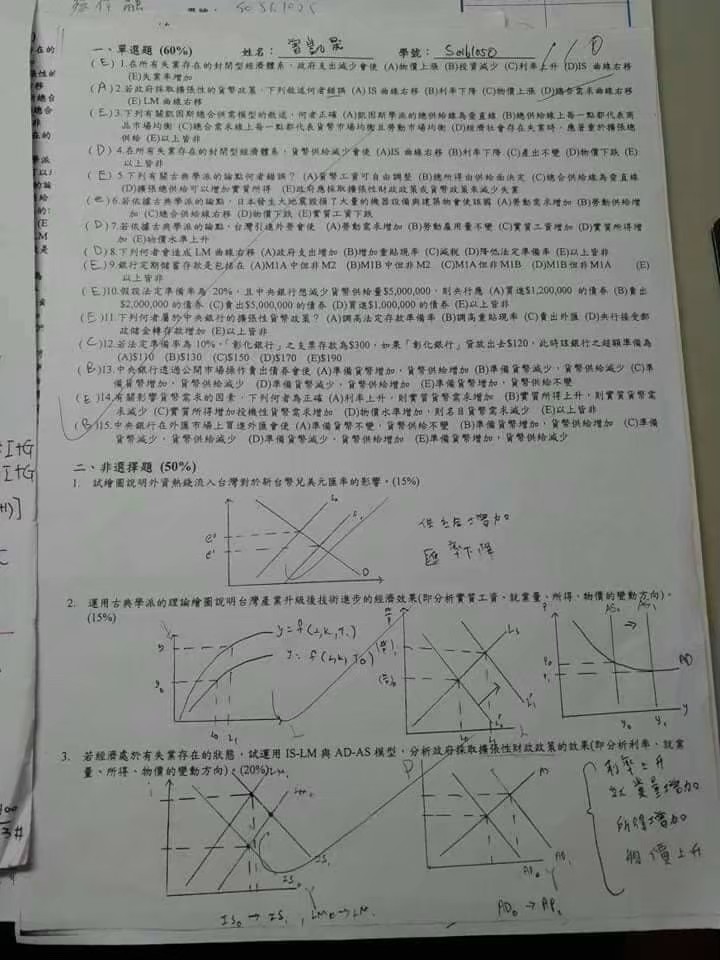 一、單選題 (60%) 姓名: 學號: S0161050
(E) 1.在所有失業存在的封閉型經濟體系,政府支出減少會使 (A)物價上漲 (B)投資減少 (C)利率上升 (D)IS 曲線右移
(E)失業率增加
(A) 2.若政府採取擴張性的貨幣政策,下列敘述何者錯誤 (A)IS 曲線右移 (B)利率下降 (C)物價上漲 (D)總合需求曲線右移
(E) LM 曲線右移
(E) 3.下列有關凱因斯總合供需模型的敘述,何者正確 (A)凱因斯學派的總供給線為垂直線 (B)總供給線上每一點都代表商
品市場均衡 (C)總合需求線上每一點都代表貨幣市場均衡及勞動市場均衡 (D)經濟社會存在失業時,應著重於擴張總
供給 (E)以上皆非
(D) 4.在所有失業存在的封閉型經濟體系,貨幣供給減少會使 (A)IS 曲線右移 (B)利率下降 (C)產出不變 (D)物價下跌 (E)
以上皆非
(E) 5.下列有關古典學派的論點何者錯誤? (A)貨幣工資可自由調整 (B)總所得由供給面決定 (C)總合供給線為垂直線
(D)擴張總供給可以增加實質所得 (E)政府應採取擴張性財政政策或貨幣政策來減少失業
(e) 6.若依據古典學派的論點,日本發生大地震毀損了大量的機器設備與建築物會使該國 (A)勞動需求增加 (B)勞動供給增
加 (C)總合供給線右移 (D)物價下跌 (E)實質工資下跌
(D) 7.若依據古典學派的論點,台灣引進外勞會使 (A)勞動需求增加 (B)勞動雇用量不變 (C)實質工資增加 (D)實質所得增
加 (E)物價水準上升
(D) 8.下列何者會造成 LM 曲線右移 (A)政府支出增加 (B)增加重貼現率 (C)減稅 (D)降低法定準備率 (E)以上皆非
(E) 9.銀行定期儲蓄存款是包括在 (A)M1A 中但非 M2 (B)M1B 中但非 M2 (C)M1A 但非 M1B (D)M1B 但非 M1A (E)
以上皆非
(E)10.假設法定準備率為 20%,且中央銀行想減少貨幣供給量$5,000,000,則央行應 (A)買進$1,200,000 的債券 (B)賣出
$2,000,000 的債券 (C)賣出$5,000,000 的債券 (D)買進$1,000,000 的債券 (E)以上皆非
(E)11.下列何者屬於中央銀行的擴張性貨幣政策? (A)調高法定存款準備率 (B)調高重貼現率 (C)賣出外匯 (D)央行接受郵
政儲金轉存款增加 (E)以上皆非
(C)12.若法定準備率為 10%,「彰化銀行」之支票存款為$300,如果「彰化銀行」貸放出去$120,此時該銀行之超額準備為
(A)$110 (B)$130 (C)$150 (D)$170 (E)$190
(B)13.中央銀行透過公開市場操作賣出債券會使 (A)準備貨幣增加,貨幣供給增加 (B)準備貨幣減少,貨幣供給減少 (C)準
備貨幣增加,貨幣供給減少 (D)準備貨幣減少,貨幣供給增加 (E)準備貨幣增加,貨幣供給不變
(E)14.有關影響貨幣需求的因素,下列何者為正確 (A)利率上升,則實質貨幣需求增加 (B)實質所得上升,則實質貨幣需
求減少 (C)實質所得增加投機性貨幣需求增加 (D)物價水準增加,則名目貨幣需求減少 (E)以上皆非
(B)15.中央銀行在外匯市場上買進外匯會使 (A)準備貨幣不變,貨幣供給不變 (B)準備貨幣增加,貨幣供給增加 (C)準備
貨幣減少,貨幣供給減少 (D)準備貨幣減少,貨幣供給增加 (E)準備貨幣增加,貨幣供給減少
二、非選擇題 (50%)
1. 試繪圖說明外資熱錢流入台灣對於新台幣兌美元匯率的影響。(15%)
供給增加
匯率下降
2. 運用古典學派的理論繪圖說明台灣產業升級後技術進步的經濟效果(即分析實質工資、就業量、所得、物價的變動方向)。
(15%)
y=f(L,K,T₁)
y=f(L,K,T₀)
3. 若經濟處於有失業存在的狀態,試運用 IS-LM 與 AD-AS 模型,分析政府採取擴張性財政政策的效果(即分析利率、就業
量、所得、物價的變動方向)。(20%)
利率上升
就業量增加
所得增加
物價上升
IS₀→IS₁, LM₀→LM₁
AD₀→AD₁